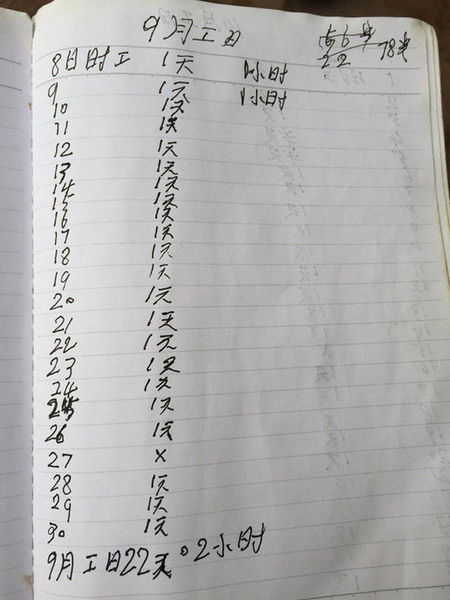 9月工日
8日时工 1天 1小时 56 22 78
9 1天 1小时
10 1天
11 1天
12 1天
13 1天
14 1天
15 1天
16 1天
17 1天
18 1天
19 1天
20 1天
21 1天
22 1天
23 1天
24 1天
25 1天
26 1天
27 x
28 1天
29 1天
30 1天
9月工日22天。2小时